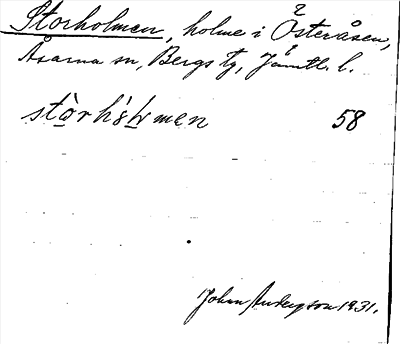 Storholmen, holme i Österåsen,
Åsarna sn, Bergs tg, Jämtl. l.
stòrhólmen 58
John Anderson 1931.